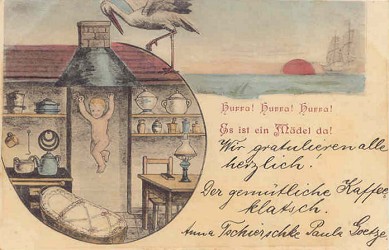 Hurra! Hurra! Hurra!
Es ist ein Mädel da!
Wir gratulieren alle
herzlich!
Der gemütliche Kaffee-
klatsch.
Anna Tschierschke Paula Goetze.